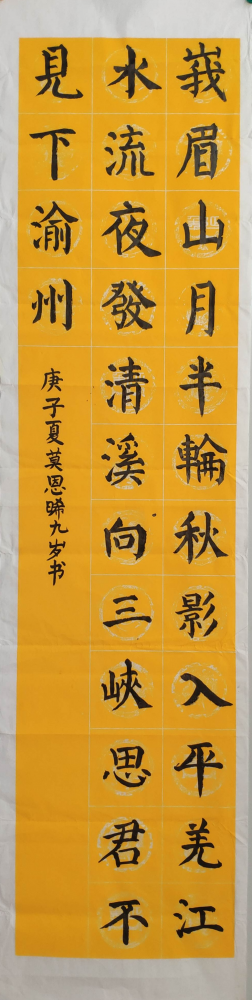 峩眉山月半輪秋影入平羌江
水流夜發清溪向三峽思君不
見下渝州
庚子夏莫恩晞九岁书